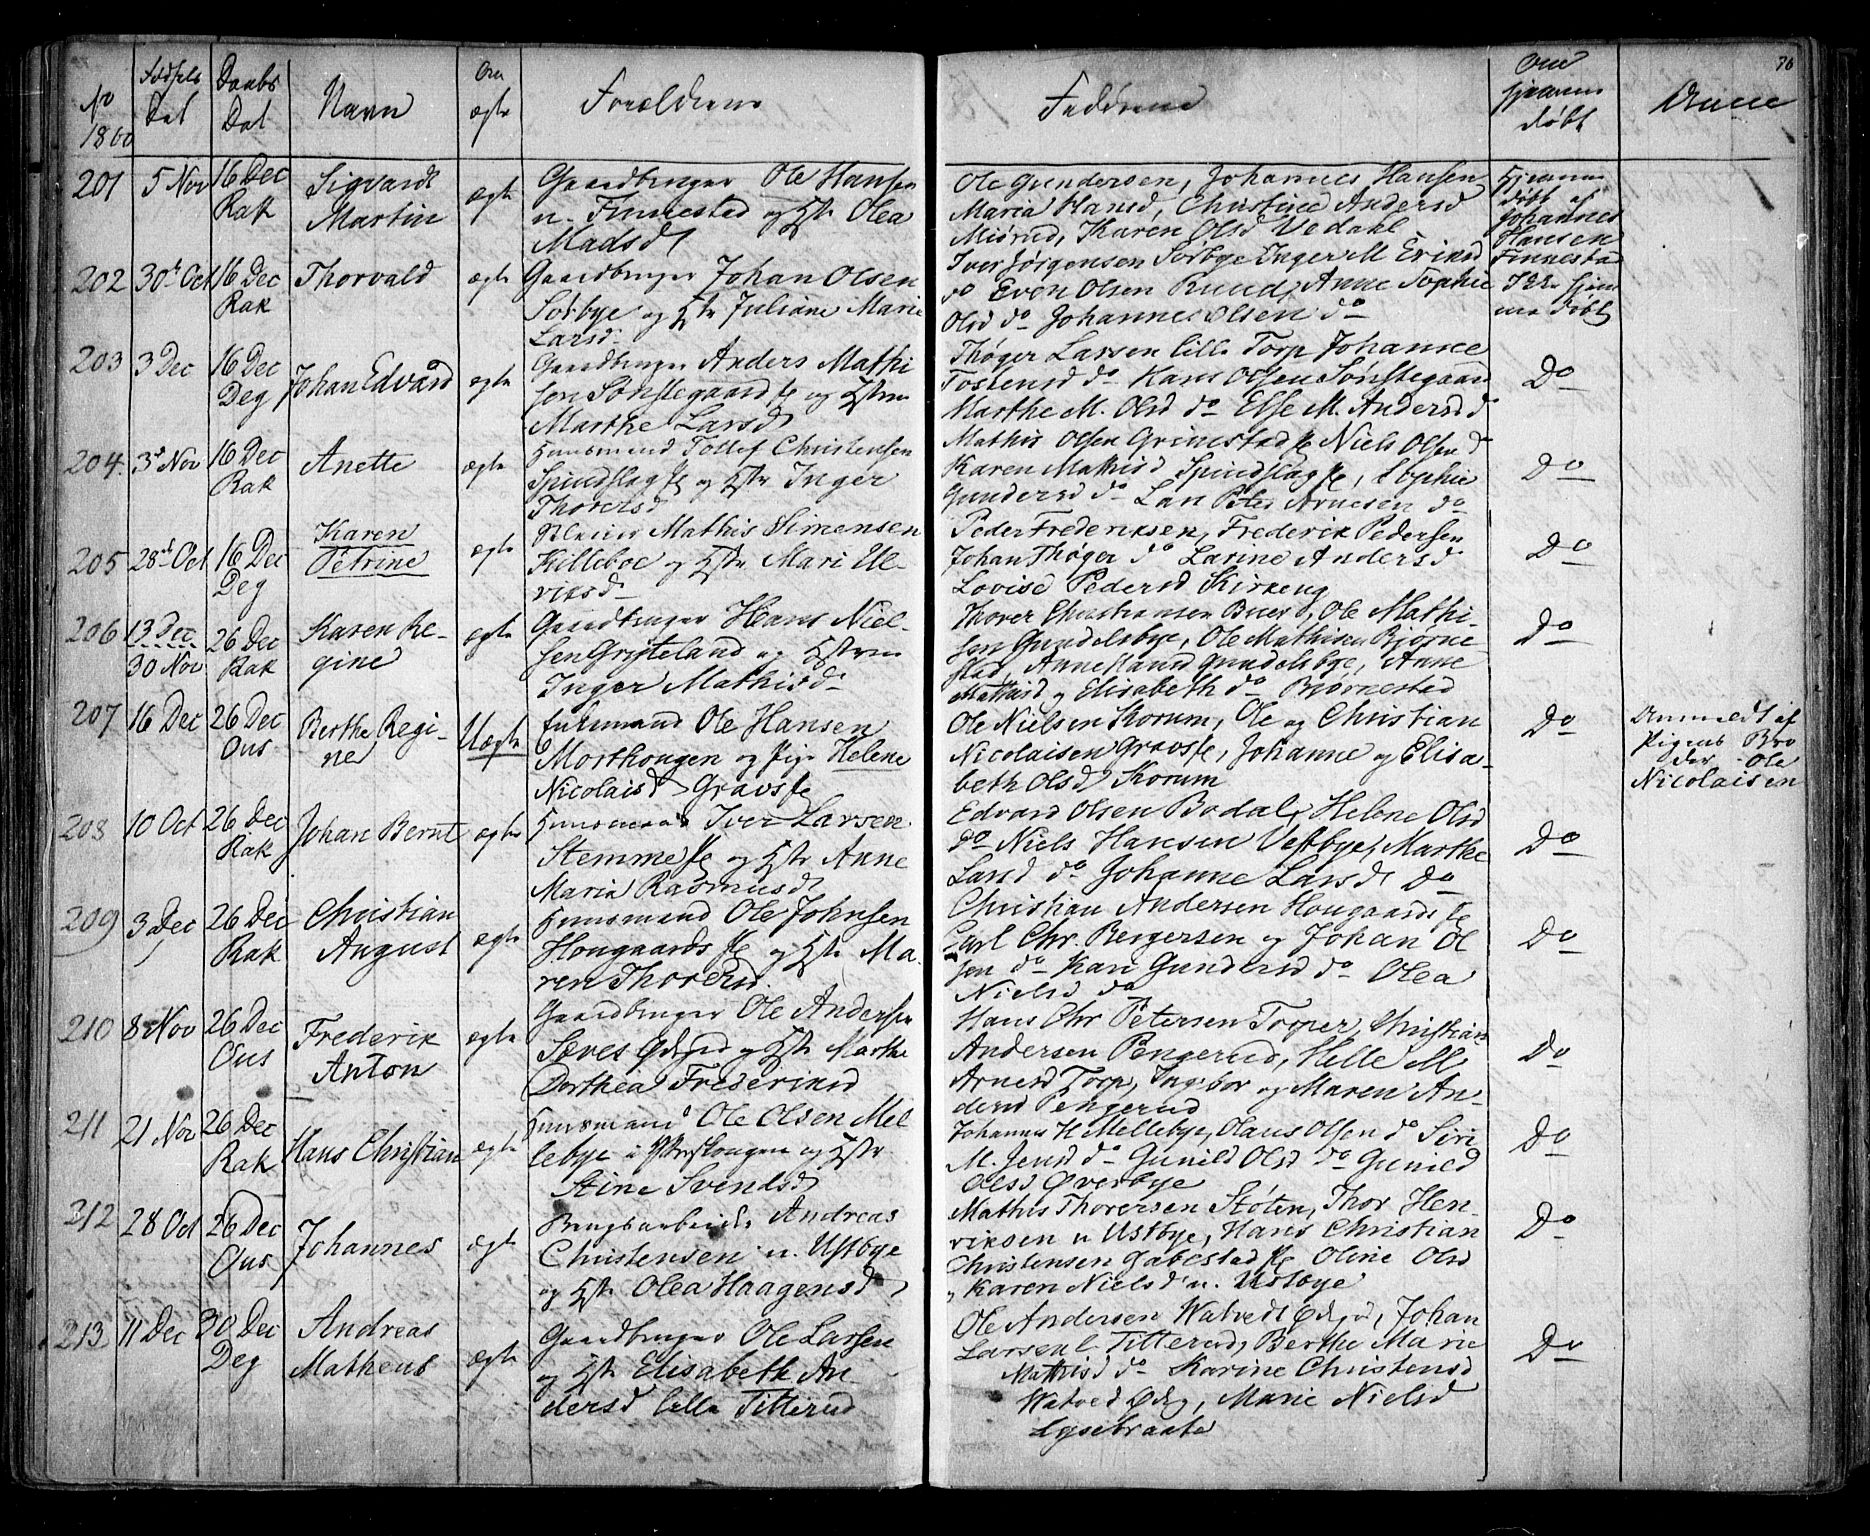 No 1860 Fødsels Dat Daabs Dat Navn Om ægte Forældrene Fadderne Om hjemme døbt Anm 76
201 5 Nov 16 Dec Rak Sigvardt Martin ægte Gaardbruger Ole Hansen
n. Finnestad og Hstr Olea
Madsd
Ole Gundersen, Johannes Hansen
Maria Hansd, Christine Andersd
Miørud, Karen Olsd Vedahl
Hjemme
døbt af
Johannes
Hansen
Finnestad
202 30t Oct 16 Dec Rak Thorvald ægte Gaardbruger Johan Olsen
Sosbye og Hstr Juliane Marie
Larsd
Iver Jørgensen Sosbye Inger M Eriksd
do Even Olsen Ruud, Anne Sophie
Olsd do Johannes Olsen do
Ikke hjem
me døbt
203 3 Dec 16 Dec Deg Johan Edvard ægte Gaardbruger Anders Mathi
sen Sønstegaard og Hstru
Marthe Larsd
Thøger Larsen lille Torp Johanne
Tostensd do Hans Olsen Sønstegaard
Marthe M. Olsd do Else M. Andersd d
Do
204. 3d Nov 16 Dec Rak Anette ægte Huusmand Tollef Christensen
Spindslag og Hstr Inger
Thorersd
Mathis Olsen Grimestad Niels Olsen d
Karen Mathisd Spindslag, Sophie
Gundersd do Lars Peter Arnesen do
Do
205 28d Oct 16 Dec Deg Karen
Petrine ægte Mathis Simensen
Killeboe og Hstr Mari Ul-
riksd
Peder Frederiksen, Frederik Pedersen
Johan Thøger do Larine Andersd
Lovise Pedersd Kirkeng
Do
206 13 Dec
30 Nov 26 Dec Rak Karen Re-
gine ægte Gaardbruger Hans Niel-
sen Gryteland og Hstru
Inger Mathisd
Thorer Christiansen Buerd, Ole Mathi-
sen Gundelsbye, Ole Mathisen Bjørne
stad, Anne Hansd Gundelsbye, Anne
Mathisd og Elisabeth do Bjørnestad
Do
207 16 Dec 26 Dec Ous Berthe Regi-
ne Uægte Enkemand Ole Hansen
Morthougen og Pige Helene
Nicolaisd Gravs
Ole Nielsen Korum, Ole og Christian
Nicolaisen Gravs, Johanne og Elisa-
beth Olsd Korum
Do Anmeldt af
Pigens Bro
der Ole
Nicolaisen
208 10 Oct 26 Dec Rak Johan Bernt ægte Huusmand Iver Larsen
Stemme og Hstr Anne
Maria Rasmusd
Edvard Olsen Bodal, Helene Olsd
do Niels Hansen Vestbye, Marthe
Larsd do Johanne Larsd Do
Do
209 3 Dec 26 Dec Rak Christian
August ægte Huusmand Ole Johnsen
Hougaards og Hstr Ma-
ren Thorersd.
Christian Andersen Hougaards
Carl Chr. Bergersen og Johan Ol
sen do Kari Gundersd do Olea
Nielsd do
Do
210 8 Nov 26 Dec Ous Frederik
Anton ægte Gaardbruger Ole Andersen
Sæves og Hstr Marthe
Dorthea Frederiksd
Hans Chr Petersen Torper, Christian
Andersen Pengerud, Helle M
Arnesd Torp, Ingebor og Maren An-
dersd Pengerud
Do
211 21 Nov 26 Dec Rak Hans Christian ægte Huusmand Ole Olsen Mel
lebye i Ytterskougen og Hstr
Stine Svendsd
Johannes H Mellebye, Olaus Olsen do Siri
M. Jensd do Gunild Olsd do Gunild
Olsd Øverbye
Do
212 28 Oct 26 Dec Ous Johannes ægte Brugsarbeider Andreas
Christensen n. Ustbye
og Hstr Olea Haagensd
Mathis Thorersen Støten, Thor Hen-
riksen n Ustbye, Hans Christian
Christensen Gabestad Oline Olsd
Karen Nielsd n. Ustbye
Do
213 11 Dec 30 Dec Deg Andreas
Matheus ægte Gaardbruger Ole Larsen
og Hstr Elisabeth An-
dersd lille Titterud
Ole Andersen Watvedt, Johan
Larsen l. Titterud, Berthe Marie
Mathisd do Karine Christensd
Watved, Marie Nielsd
Lysebraate
Do